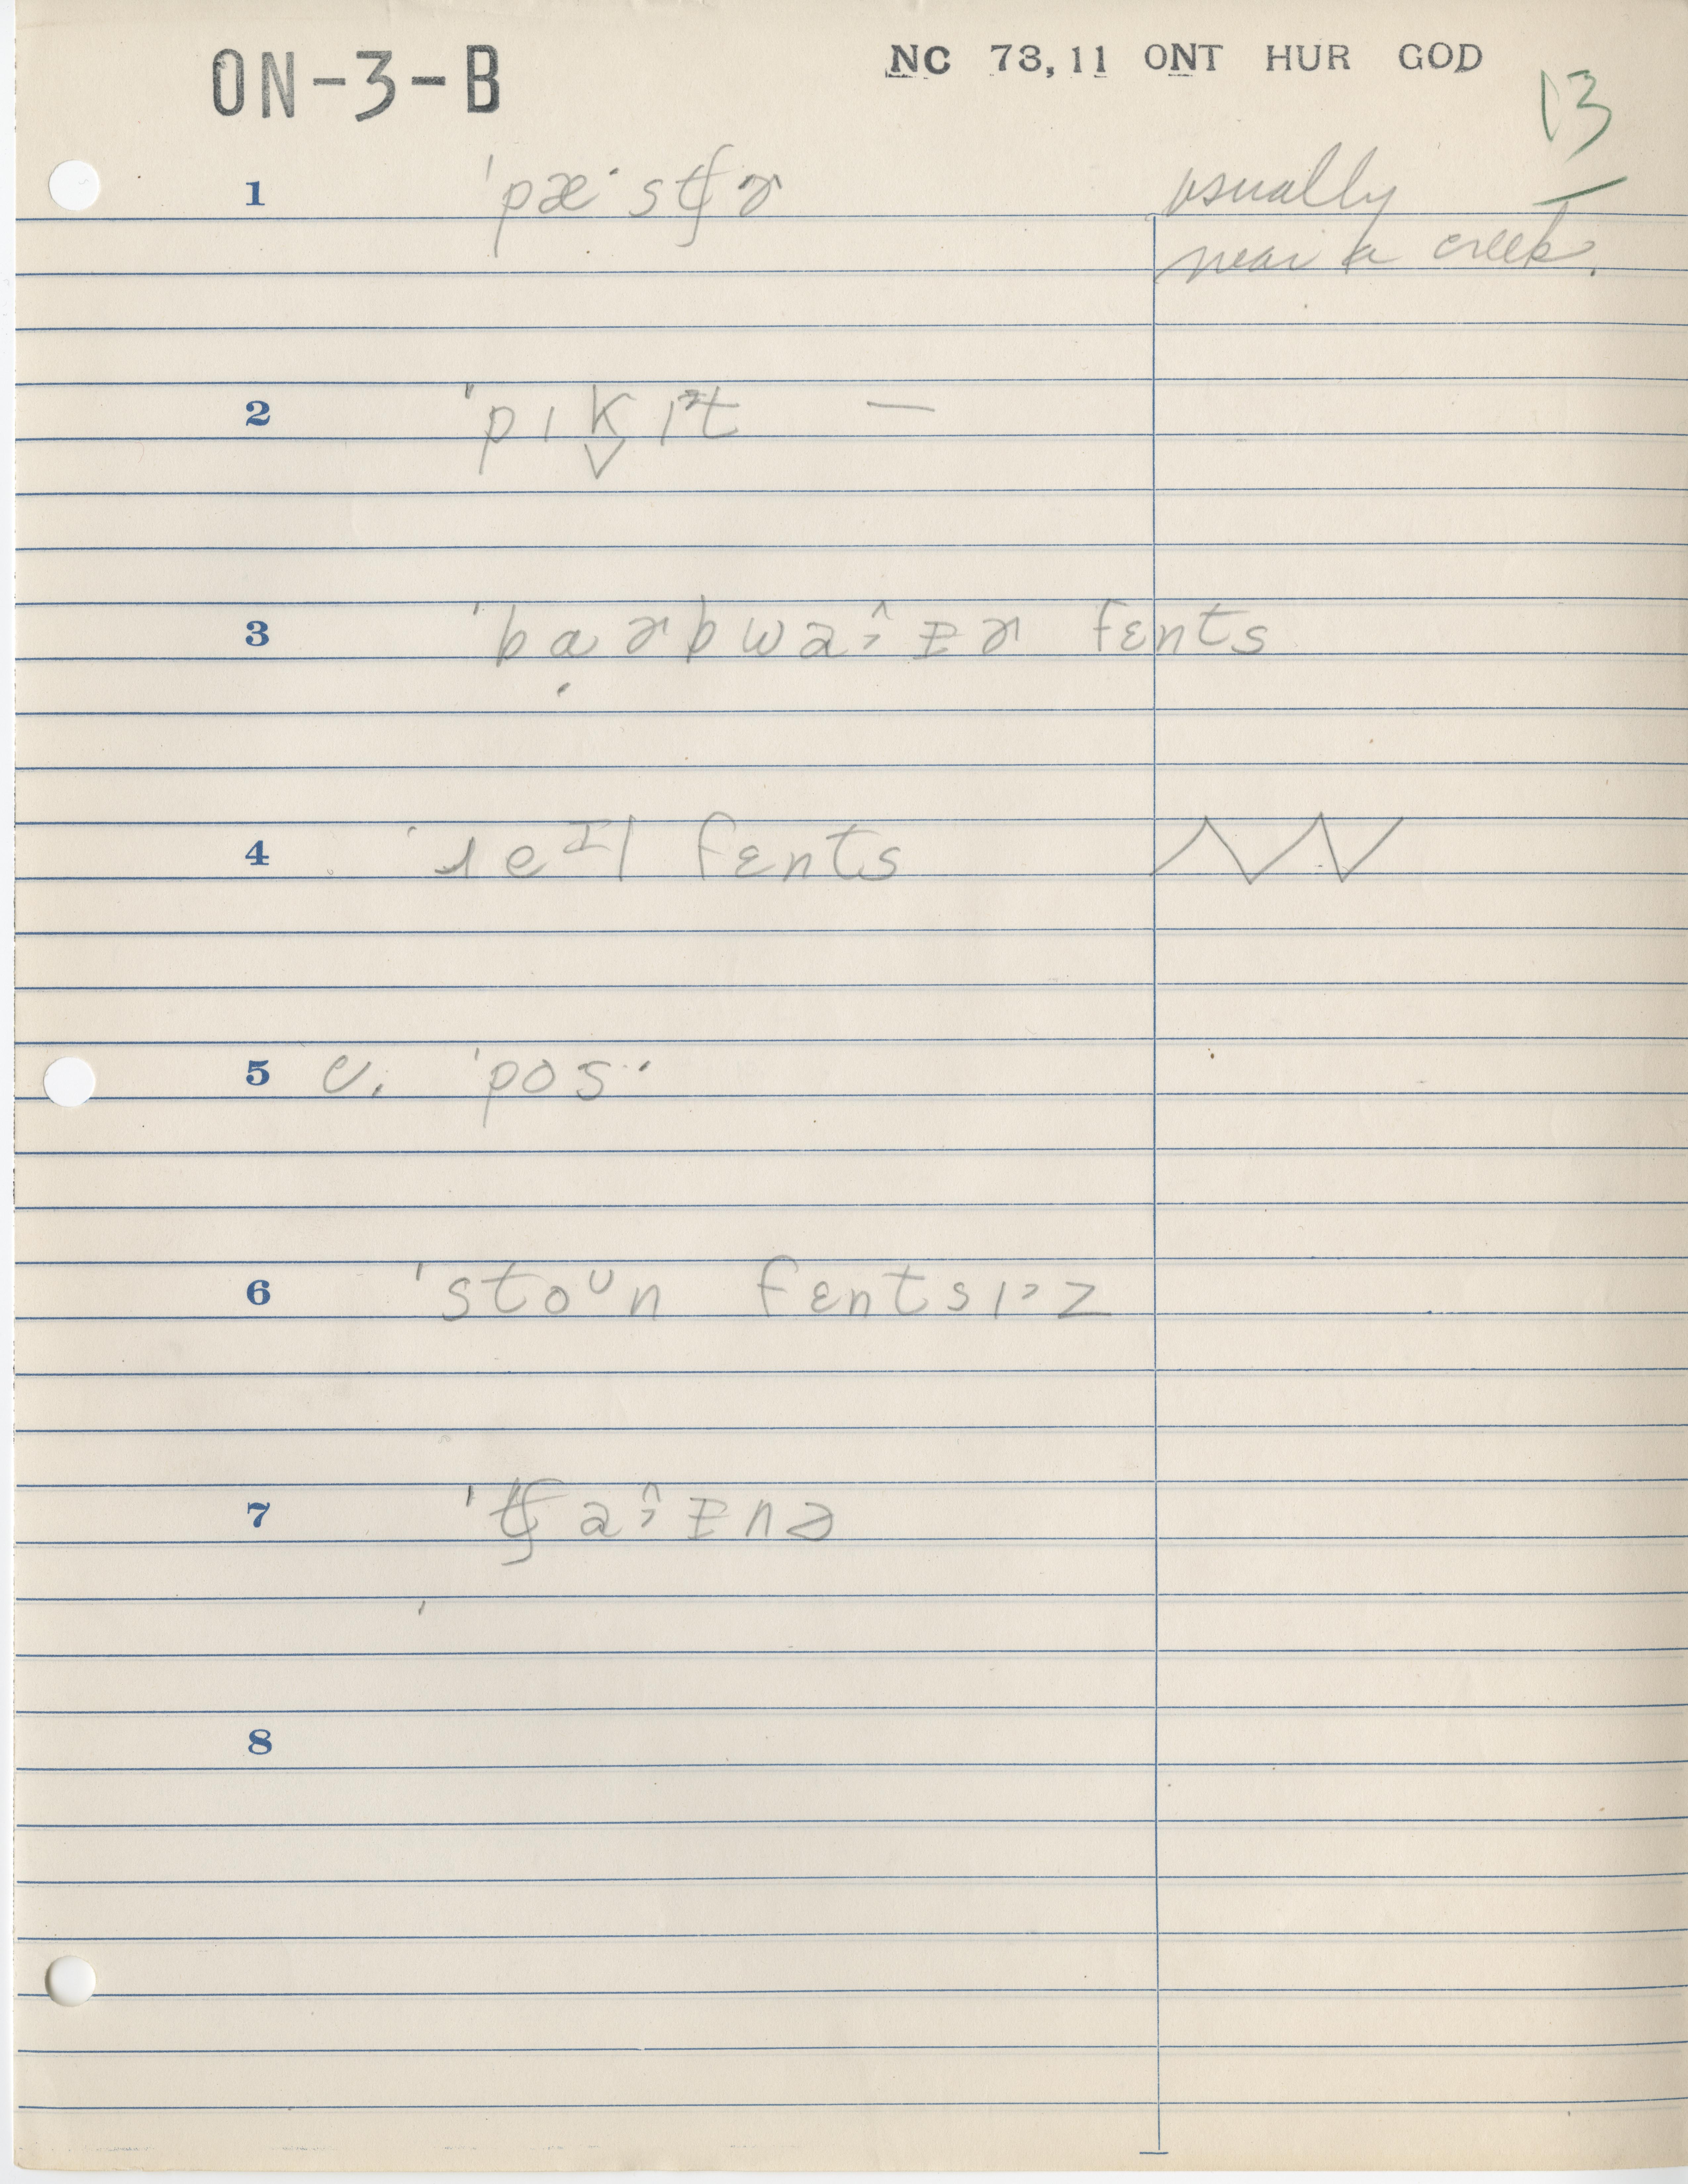 ON-3-B
NC 73,11 ONT HUR GOD
13
1 ˈpæ·stʃɚ usually
near a creek.
2 ˈpɪk̬ɪᵊt —
3 ˈbɑɚbwaɪɚ fɛnts
4 ˈɹeᴵl fɛnts
5 c. ˈpos··
6 ˈstoᵁn fɛntsɪ˃z
7 ˈtʃa˄˃ɪnə
8